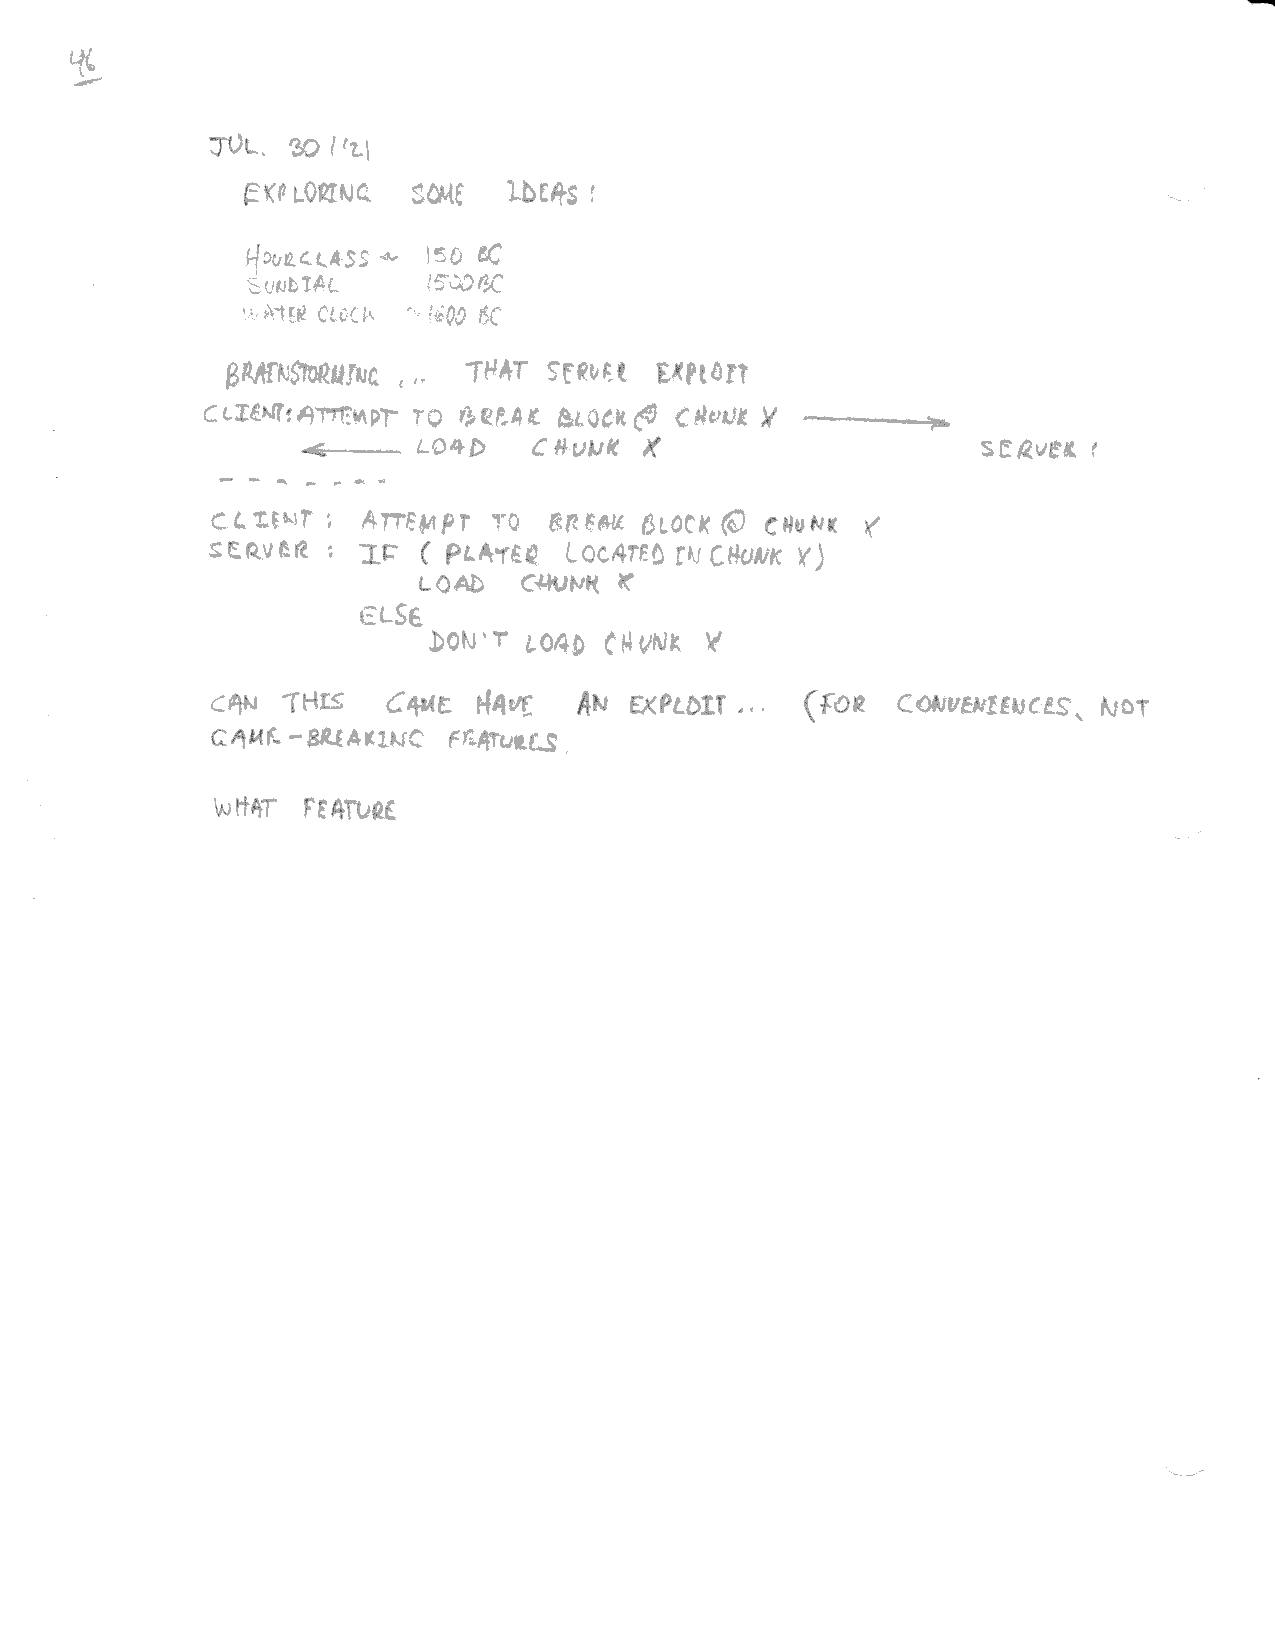 46
JUL. 30 / '21
EXPLORING SOME IDEAS!
HOURGLASS ~ 150 BC
SUNDIAL 1500 BC
WATER CLOCK ~ 1600 BC
BRAINSTORMING ... THAT SERVER EXPLOIT
CLIENT: ATTEMPT TO BREAK BLOCK @ CHUNK X →
← LOAD CHUNK X SERVER!
- - - - - - -
CLIENT: ATTEMPT TO BREAK BLOCK @ CHUNK X
SERVER: IF ( PLAYER LOCATED IN CHUNK X)
LOAD CHUNK X
ELSE
DON'T LOAD CHUNK X
CAN THIS GAME HAVE AN EXPLOIT... (FOR CONVENIENCES, NOT
GAME-BREAKING FEATURES.
WHAT FEATURE